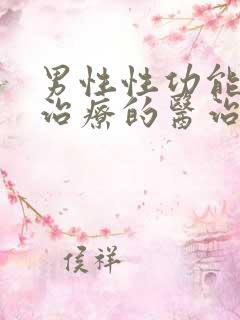 男性性功能
治療的醫治
侯祥